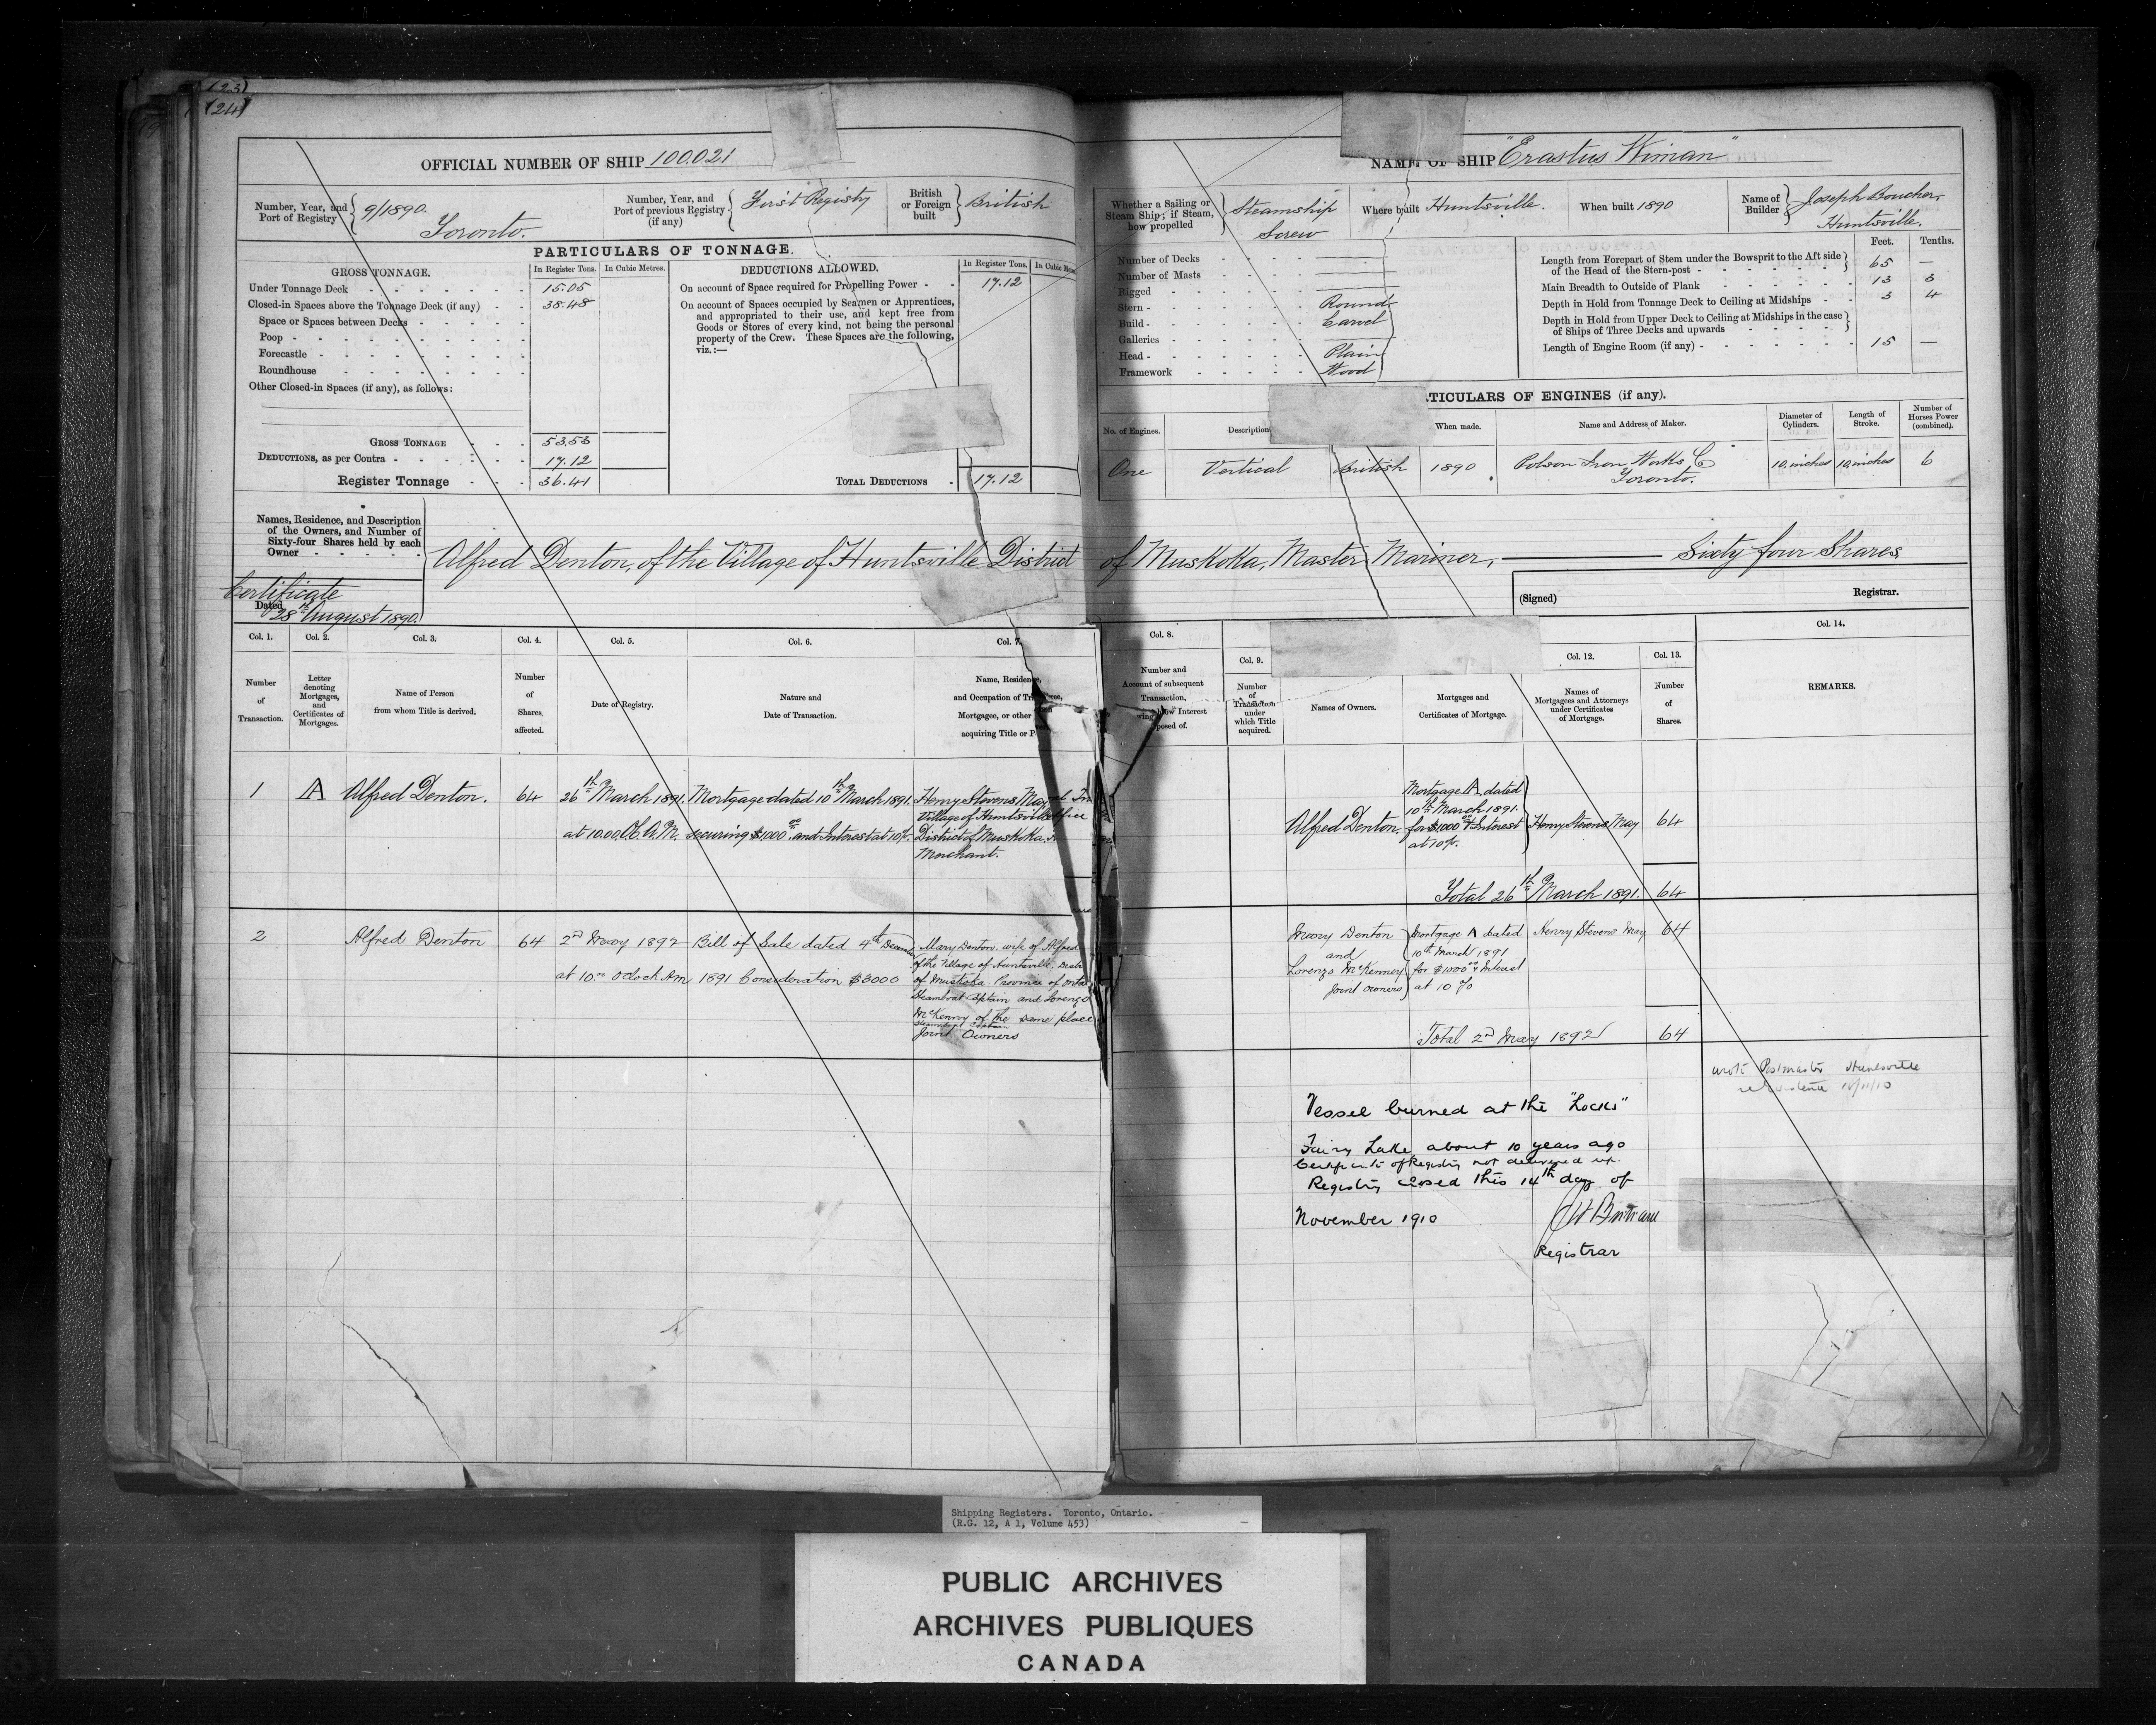 (23)
(24)
OFFICIAL NUMBER OF SHIP 100.021
Number, Year, and Port of Registry } 9/1890. Toronto.
Number, Year, and Port of previous Registry (if any) { First Registry
British or Foreign built } British
PARTICULARS OF TONNAGE.
GROSS TONNAGE.
In Register Tons. In Cubic Metres.
Under Tonnage Deck - 15.05
Closed-in Spaces above the Tonnage Deck (if any) - 38.48
Space or Spaces between Decks -
Poop -
Forecastle -
Roundhouse -
Other Closed-in Spaces (if any), as follows:
GROSS TONNAGE - 53.53
DEDUCTIONS, as per Contra - 17.12
Register Tonnage - 36.41
DEDUCTIONS ALLOWED.
In Register Tons. In Cubic
On account of Space required for Propelling Power - 17.12
On account of Spaces occupied by Seamen or Apprentices,
and appropriated to their use, and kept free from
Goods or Stores of every kind, not being the personal
property of the Crew. These Spaces are the following,
viz.:—
TOTAL DEDUCTIONS - 17.12
NAME OF SHIP "Erastus Wiman"
Whether a Sailing or Steam Ship; if Steam, how propelled } Steamship Screw
Where built Huntsville.
When built 1890
Name of Builder } Joseph Boucher, Huntsville.
Number of Decks -
Number of Masts -
Rigged -
Stern - Round
Build - Carvel
Galleries -
Head - Plain
Framework - Wood
Feet. Tenths.
Length from Forepart of Stem under the Bowsprit to the Aft side of the Head of the Stern-post - 65 —
Main Breadth to Outside of Plank - 13 3
Depth in Hold from Tonnage Deck to Ceiling at Midships - 3 4
Depth in Hold from Upper Deck to Ceiling at Midships in the case of Ships of Three Decks and upwards -
Length of Engine Room (if any) - 15 —
TICULARS OF ENGINES (if any).
No. of Engines. Description When made. Name and Address of Maker. Diameter of Cylinders. Length of Stroke. Number of Horses Power (combined).
One Vertical British 1890 Polson Iron Works Co Toronto. 10 inches 10 inches 6
Names, Residence, and Description of the Owners, and Number of Sixty-four Shares held by each Owner -
Alfred Denton, of the Village of Huntsville District of Muskoka, Master Mariner, — Sixty four Shares
Certificate
Dated 28th August 1890.
(Signed) Registrar.
Col. 1. Col. 2. Col. 3. Col. 4. Col. 5. Col. 6. Col. 7.
Number of Transaction.
Letter denoting Mortgages, and Certificates of Mortgages.
Name of Person from whom Title is derived.
Number of Shares affected.
Date of Registry.
Nature and Date of Transaction.
Name, Residence,
and Occupation of
Mortgagee, or other
acquiring Title or
Col. 8. Col. 9. Col. 12. Col. 13. Col. 14.
Number and
Account of subsequent
Transaction,
Interest
posed of.
Number of Transaction under which Title acquired.
Names of Owners.
Mortgages and Certificates of Mortgage.
Names of Mortgagees and Attorneys under Certificates of Mortgage.
Number of Shares.
REMARKS.
1 A Alfred Denton. 64
26th March 1891.
at 10.00 O.C. A.M.
Mortgage dated 10th March 1891.
securing $1000 00 and Interest at 10%.
Henry Stevens May
Village of Huntsville
District of Muskoka
Merchant.
Alfred Denton.
Mortgage A. dated
10th March 1891.
for $1000 & Interest
at 10%.
Henry Stevens May 64
Total 26th March 1891. 64
2 Alfred Denton 64
2nd May 1892
at 10 00 oClock Am
Bill of Sale dated 4th December
1891 Consideration $3000
Mary Denton, wife of Alfred
of the Village of Huntsville,
of Muskoka Province of
Steamboat Captain and Lorenzo
McKenny of the same place
Steamboat Captain
Joint Owners
Mary Denton
and
Lorenzo McKenney
Joint Owners
Mortgage A dated
10th March 1891
for $1000 00 & Interest
at 10 %
Henry Stevens May 64
Total 2nd May 1892 64
wrote Postmaster Huntsville
Vessel burned at the "Locks"
Fairy Lake about 10 years ago
Certificate of Registry not delivered up.
Registry closed this 14th day of
November 1910
Registrar
Shipping Registers. Toronto, Ontario.
(R.G. 12, A 1, Volume 453)
PUBLIC ARCHIVES
ARCHIVES PUBLIQUES
CANADA